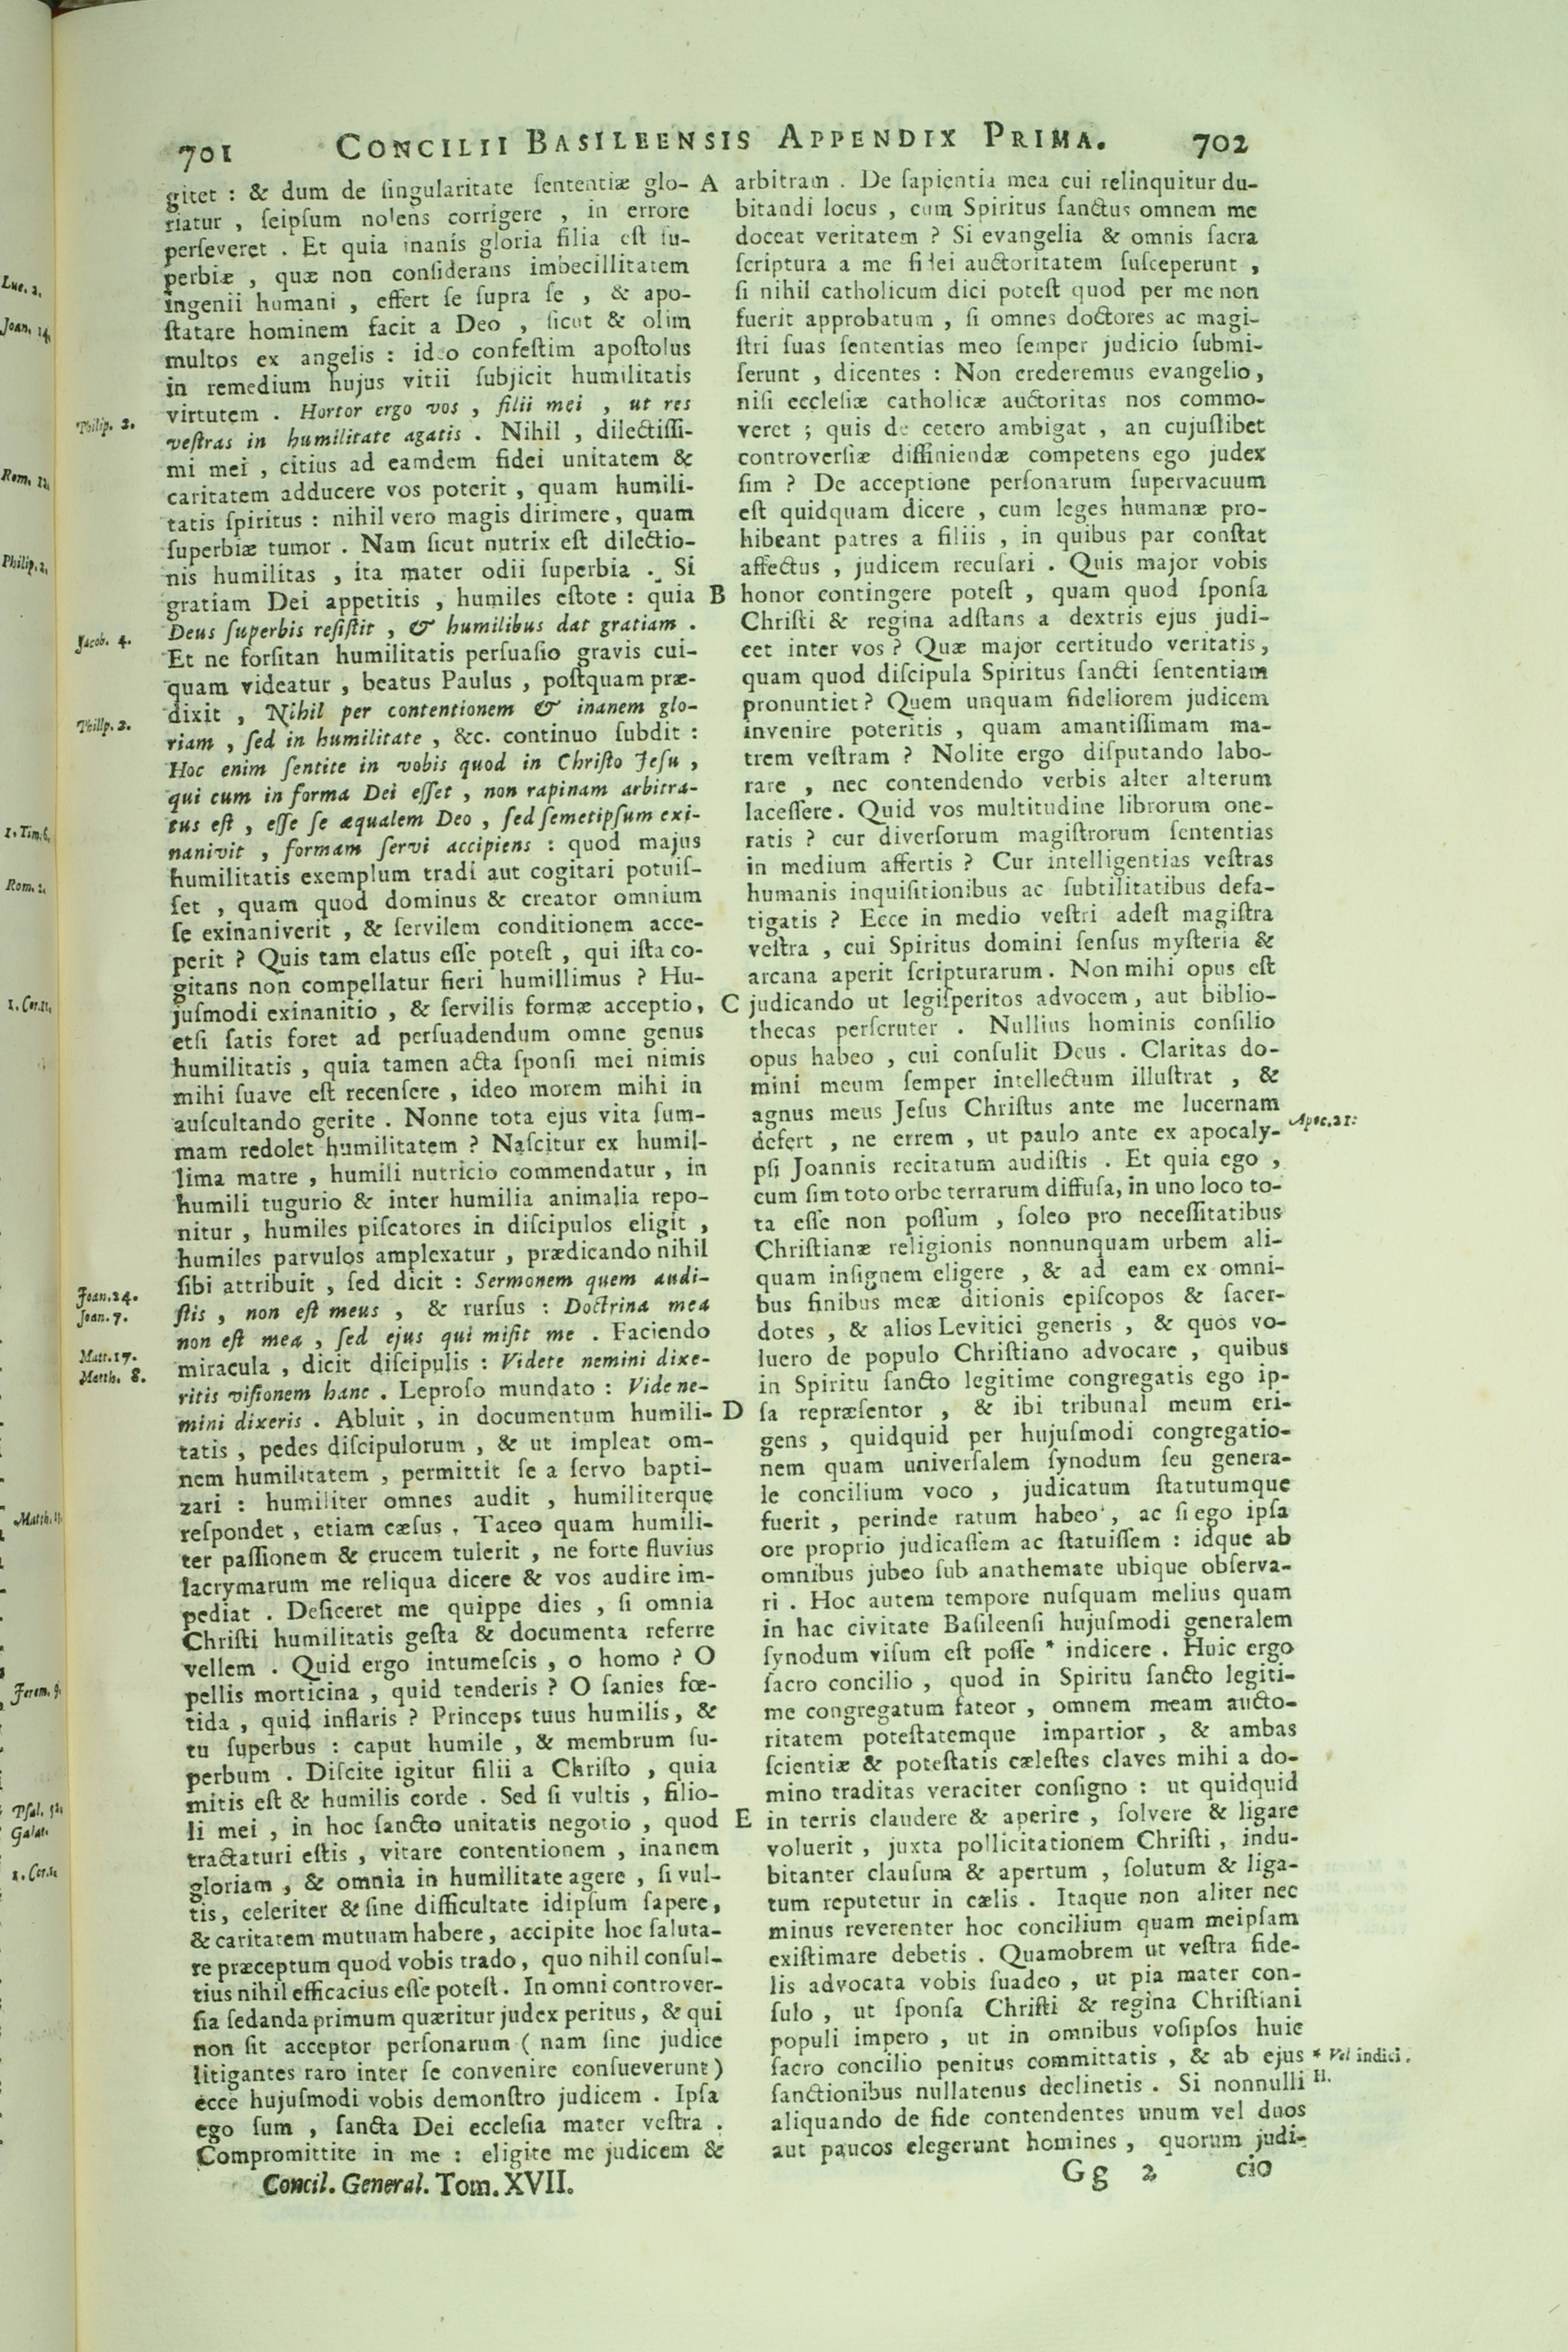 701 CONCILII BASILEENSIS APPENDIX PRIMA. 702
gitet : & dum de ſingularitate ſententiæ glo-
riatur , ſeipſum nolens corrigere , in errore
perſeveret . Et quia inanis gloria filia eſt ſu-
perbiæ , quæ non conſiderans imbecillitatem
ingenii humani , effert ſe ſupra ſe , & apo-
ſtatare hominem facit a Deo , ſicut & olim
multos ex angelis : ideo confeſtim apoſtolus
in remedium hujus vitii ſubjicit humilitatis
virtutem . Hortor ergo vos , filii mei , ut res
veſtras in humilitate agatis . Nihil , dilectiſſi-
mi mei , citius ad eamdem fidei unitatem &
caritatem adducere vos poterit , quam humili-
tatis ſpiritus : nihil vero magis dirimere, quam
ſuperbiæ tumor . Nam ſicut nutrix eſt dilectio-
nis humilitas , ita mater odii ſuperbia . Si
gratiam Dei appetitis , humiles eſtote : quia
Deus ſuperbis reſiſtit , & humilibus dat gratiam .
Et ne forſitan humilitatis perſuaſio gravis cui-
quam videatur , beatus Paulus , poſtquam præ-
dixit , Nihil per contentionem & inanem glo-
riam , ſed in humilitate , &c. continuo ſubdit :
Hoc enim ſentite in vobis quod in Chriſto Jeſu ,
qui cum in forma Dei eſſet , non rapinam arbitra-
tus eſt , eſſe ſe æqualem Deo , ſed ſemetipſum exi-
nanivit , formam ſervi accipiens : quod majus
humilitatis exemplum tradi aut cogitari potuiſ-
ſet , quam quod dominus & creator omnium
ſe exinaniverit , & ſervilem conditionem acce-
perit ? Quis tam elatus eſſe poteſt , qui iſta co-
gitans non compellatur fieri humillimus ? Hu-
juſmodi exinanitio , & ſervilis formæ acceptio,
etſi ſatis foret ad perſuadendum omne genus
humilitatis , quia tamen acta ſponſi mei nimis
mihi ſuave eſt recenſere , ideo morem mihi in
auſcultando gerite . Nonne tota ejus vita ſum-
mam redolet humilitatem ? Naſcitur ex humil-
lima matre , humili nutricio commendatur , in
humili tugurio & inter humilia animalia repo-
nitur , humiles piſcatores in diſcipulos eligit ,
humiles parvulos amplexatur , prædicando nihil
ſibi attribuit , ſed dicit : Sermonem quem audi-
ſtis , non eſt meus , & rurſus : Doctrina mea
non eſt mea , ſed ejus qui miſit me . Faciendo
miracula , dicit diſcipulis : Videte nemini dixe-
ritis viſionem hanc . Leproſo mundato : Vide ne-
mini dixeris . Abluit , in documentum humili-
tatis , pedes diſcipulorum , & ut impleat om-
nem humilitatem , permittit ſe a ſervo bapti-
zari : humiliter omnes audit , humiliterque
reſpondet , etiam cæſus . Taceo quam humili-
ter paſſionem & crucem tulerit , ne forte fluvius
lacrymarum me reliqua dicere & vos audire im-
pediat . Deficeret me quippe dies , ſi omnia
Chriſti humilitatis geſta & documenta referre
vellem . Quid ergo intumeſcis , o homo ? O
pellis morticina , quid tenderis ? O ſanies fœ-
tida , quid inflaris ? Princeps tuus humilis, &
tu ſuperbus : caput humile , & membrum ſu-
perbum . Diſcite igitur filii a Chriſto , quia
mitis eſt & humilis corde . Sed ſi vultis , filio-
li mei , in hoc ſancto unitatis negotio , quod
tractaturi eſtis , vitare contentionem , inanem
gloriam , & omnia in humilitate agere , ſi vul-
tis, celeriter & ſine difficultate idipſum ſapere,
& caritatem mutuam habere, accipite hoc ſaluta-
re præceptum quod vobis trado, quo nihil conſul-
tius nihil efficacius eſſe poteſt. In omni controver-
ſia ſedanda primum quæritur judex peritus, & qui
non ſit acceptor perſonarum ( nam ſine judice
litigantes raro inter ſe convenire conſueverunt )
ecce hujuſmodi vobis demonſtro judicem . Ipſa
ego ſum , ſancta Dei eccleſia mater veſtra .
Compromittite in me : eligite me judicem &
Concil. General. Tom. XVII.
A
B
C
D
E
arbitram . De ſapientia mea cui relinquitur du-
bitandi locus , cum Spiritus ſanctus omnem me
doceat veritatem ? Si evangelia & omnis ſacra
ſcriptura a me fidei auctoritatem ſuſceperunt ,
ſi nihil catholicum dici poteſt quod per me non
fuerit approbatum , ſi omnes doctores ac magi-
ſtri ſuas ſententias meo ſemper judicio ſubmi-
ſerunt , dicentes : Non crederemus evangelio,
niſi eccleſiæ catholicæ auctoritas nos commo-
veret ; quis de cetero ambigat , an cujuſlibet
controverſiæ diffiniendæ competens ego judex
ſim ? De acceptione perſonarum ſupervacuum
eſt quidquam dicere , cum leges humanæ pro-
hibeant patres a filiis , in quibus par conſtat
affectus , judicem recuſari . Quis major vobis
honor contingere poteſt , quam quod ſponſa
Chriſti & regina adſtans a dextris ejus judi-
cet inter vos ? Quæ major certitudo veritatis,
quam quod diſcipula Spiritus ſancti ſententiam
pronuntiet ? Quem unquam fideliorem judicem
invenire poteritis , quam amantiſſimam ma-
trem veſtram ? Nolite ergo diſputando labo-
rare , nec contendendo verbis alter alterum
laceſſere. Quid vos multitudine librorum one-
ratis ? cur diverſorum magiſtrorum ſententias
in medium affertis ? Cur intelligentias veſtras
humanis inquiſitionibus ac ſubtilitatibus defa-
tigatis ? Ecce in medio veſtri adeſt magiſtra
veſtra , cui Spiritus domini ſenſus myſteria &
arcana aperit ſcripturarum. Non mihi opus eſt
judicando ut legiſperitos advocem, aut biblio-
thecas perſcruter . Nullius hominis conſilio
opus habeo , cui conſulit Deus . Claritas do-
mini meum ſemper intellectum illuſtrat , &
agnus meus Jeſus Chriſtus ante me lucernam
defert , ne errem , ut paulo ante ex apocaly-
pſi Joannis recitatum audiſtis . Et quia ego ,
cum ſim toto orbe terrarum diffuſa, in uno loco to-
ta eſſe non poſſum , ſoleo pro neceſſitatibus
Chriſtianæ religionis nonnunquam urbem ali-
quam inſignem eligere , & ad eam ex omni-
bus finibus meæ ditionis epiſcopos & ſacer-
dotes , & alios Levitici generis , & quos vo-
luero de populo Chriſtiano advocare , quibus
in Spiritu ſancto legitime congregatis ego ip-
ſa repræſentor , & ibi tribunal meum eri-
gens , quidquid per hujuſmodi congregatio-
nem quam univerſalem ſynodum ſeu genera-
le concilium voco , judicatum ſtatutumque
fuerit , perinde ratum habeo , ac ſi ego ipſa
ore proprio judicaſſem ac ſtatuiſſem : idque ab
omnibus jubeo ſub anathemate ubique obſerva-
ri . Hoc autem tempore nuſquam melius quam
in hac civitate Baſileenſi hujuſmodi generalem
ſynodum viſum eſt poſſe * indicere . Huic ergo
ſacro concilio , quod in Spiritu ſancto legiti-
me congregatum fateor , omnem meam aucto-
ritatem poteſtatemque impartior , & ambas
ſcientiæ & poteſtatis cæleſtes claves mihi a do-
mino traditas veraciter conſigno : ut quidquid
in terris claudere & aperire , ſolvere & ligare
voluerit , juxta pollicitationem Chriſti , indu-
bitanter clauſum & apertum , ſolutum & liga-
tum reputetur in cælis . Itaque non aliter nec
minus reverenter hoc concilium quam meipſam
exiſtimare debetis . Quamobrem ut veſtra fide-
lis advocata vobis ſuadeo , ut pia mater con-
ſulo , ut ſponſa Chriſti & regina Chriſtiani
populi impero , ut in omnibus voſipſos huic
ſacro concilio penitus committatis , & ab ejus
ſanctionibus nullatenus declinetis . Si nonnulli
aliquando de fide contendentes unum vel duos
aut paucos elegerunt homines , quorum judi-
Gg 2 cio
Philip. 2.
Jacob. 4.
Philip. 2.
Joan. 14.
Joan. 7.
Matt. 17.
Matth. 8.
Apoc. 21.
* Vel indici.
II.
Luc. 2.
Joan. 14.
Rom. 12.
Philip. 2.
1. Tim. 6.
Rom. 2.
1. Cor.
Matth.
Jerem. 9.
Psal.
Galat.
1. Cor.